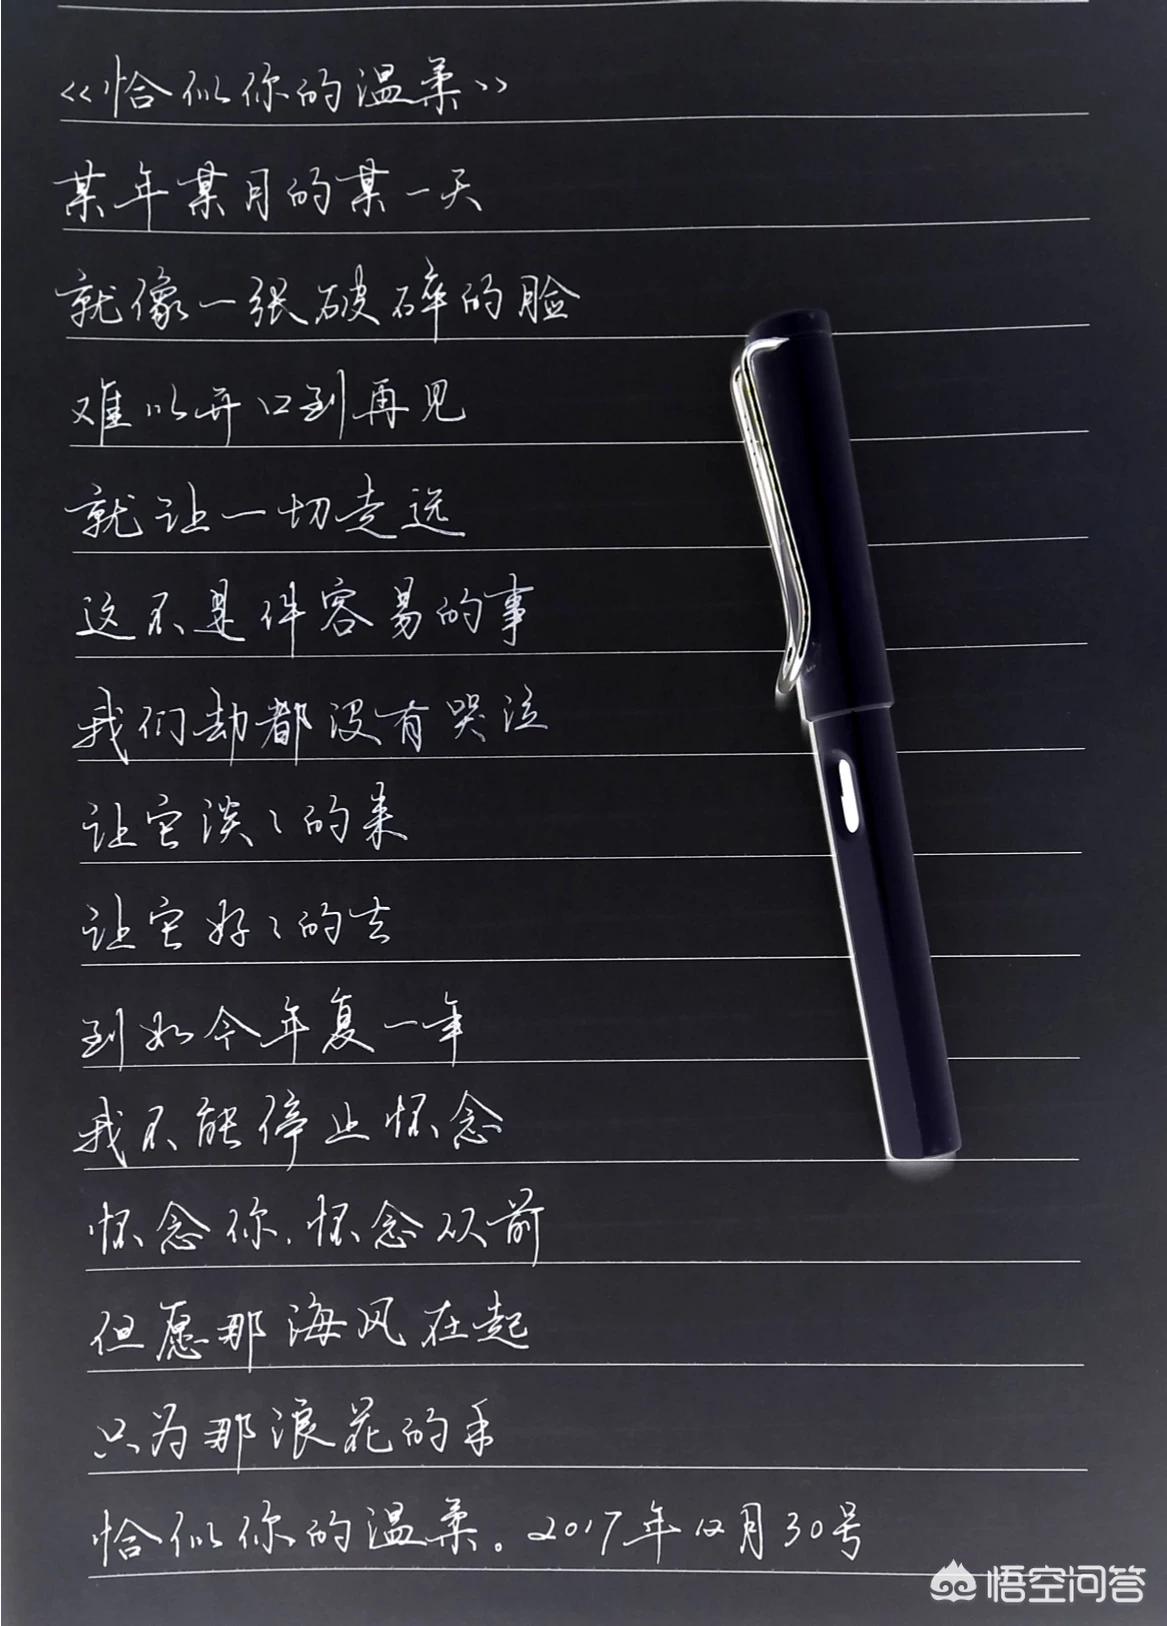 《恰似你的温柔》
某年某月的某一天
就像一张破碎的脸
难以开口到再见
就让一切走远
这不是件容易的事
我们却都没有哭泣
让它淡々的来
让它好々的去
到如今年复一年
我不能停止怀念
怀念你.怀念以前
但愿那海风在起
只为那浪花的手
恰似你的温柔。2017年12月30号
悟空问答